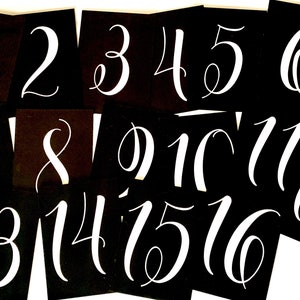 2 3 4 5 6
8 9 10 11
3 14 15 16